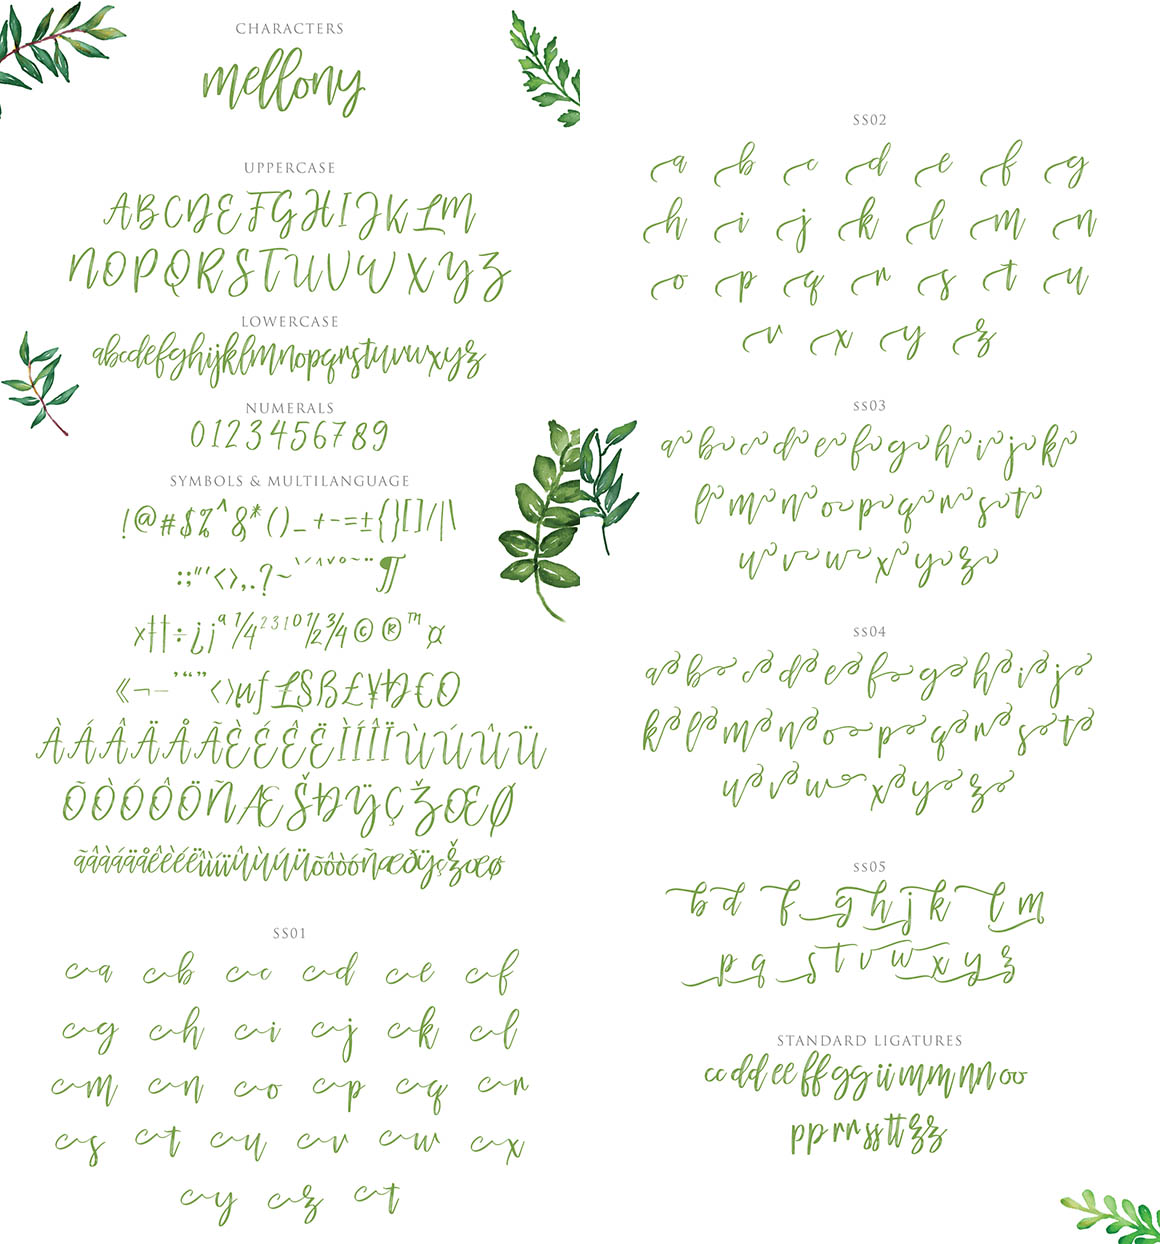 CHARACTERS
mellony
UPPERCASE
ABCDEFGHIJKLM
NOPQRSTUVWXYZ
LOWERCASE
abcdefghijklmnopqrstuvwxyz
NUMERALS
0123456789
SYMBOLS & MULTILANGUAGE
!@#$%^&*()_+-=±{}[]/|\
:;"'<>,.?~`´^ˇ°~¨¶
׆‡÷¿¡ª¼²³¹º½¾©®™¤
«¬—’“”‹›µƒ£§ß£¥Ð€0
ÀÁÂÄÅÃÈÉÊËÌÍÎÏÙÚÛÜ
ÕÒÓÔÖÑÆŠÐŸÇŽŒØ
ãâàáäåêèéëîìíïûùúüõôòóñæðÿçžœø
SS01
a b c d e f
g h i j k l
m n o p q r
s t u v w x
y z t
SS02
a b c d e f g
h i j k l m n
o p q r s t u
v x y z
SS03
a b c d e f g h i j k
l m n o p q r s t
u v w x y z
SS04
a b c d e f g h i j
k l m n o p q r s t
u v w x y z
SS05
b d f g h j k l m
p q s t v w x y z
STANDARD LIGATURES
cc dd ee ff gg ii mm nn oo
pp rr ss tt zz